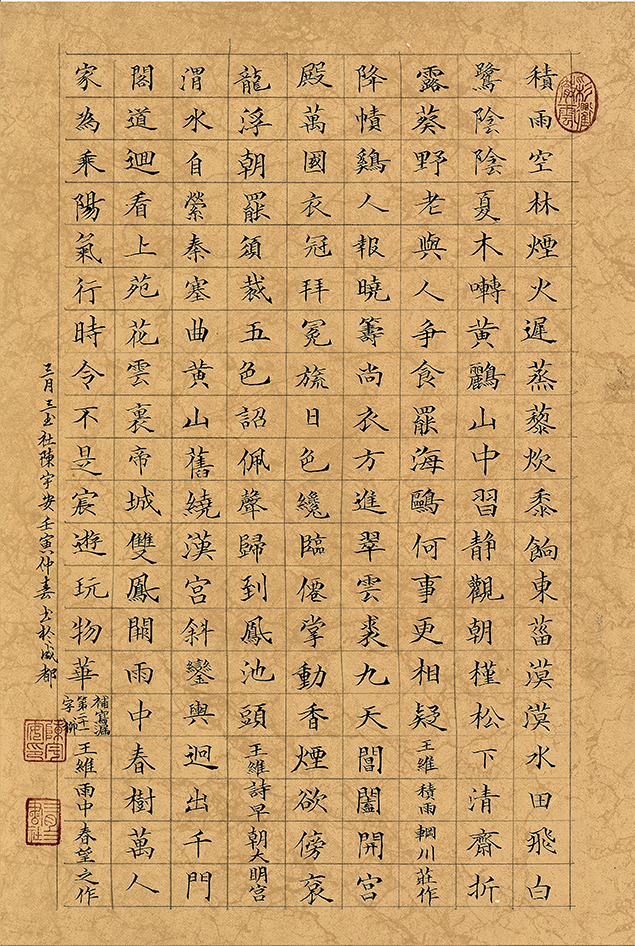 積雨空林煙火遲蒸藜炊黍餉東菑漠漠水田飛白
鷺陰陰夏木囀黃鸝山中習靜觀朝槿松下清齋折
露葵野老與人爭食罷海鷗何事更相疑王維積雨輞川莊作
降幘鷄人報曉籌尚衣方進翠雲裘九天閶闔開宮
殿萬國衣冠拜冕旒日色纔臨僊掌動香煙欲傍袞
龍浮朝罷須裁五色詔佩聲歸到鳳池頭王維詩早朝大明宮
渭水自縈秦塞曲黃山舊繞漢宮斜鑾輿迥出千門
閣道迴看上苑花雲裏帝城雙鳳闕雨中春樹萬人
家為乘陽氣行時令不是宸遊玩物華
補寫漏
第二十一
字柳
王維雨中春望之作
三月三書社陳宇安壬寅仲春書於成都
陳宇安印
三月三書社